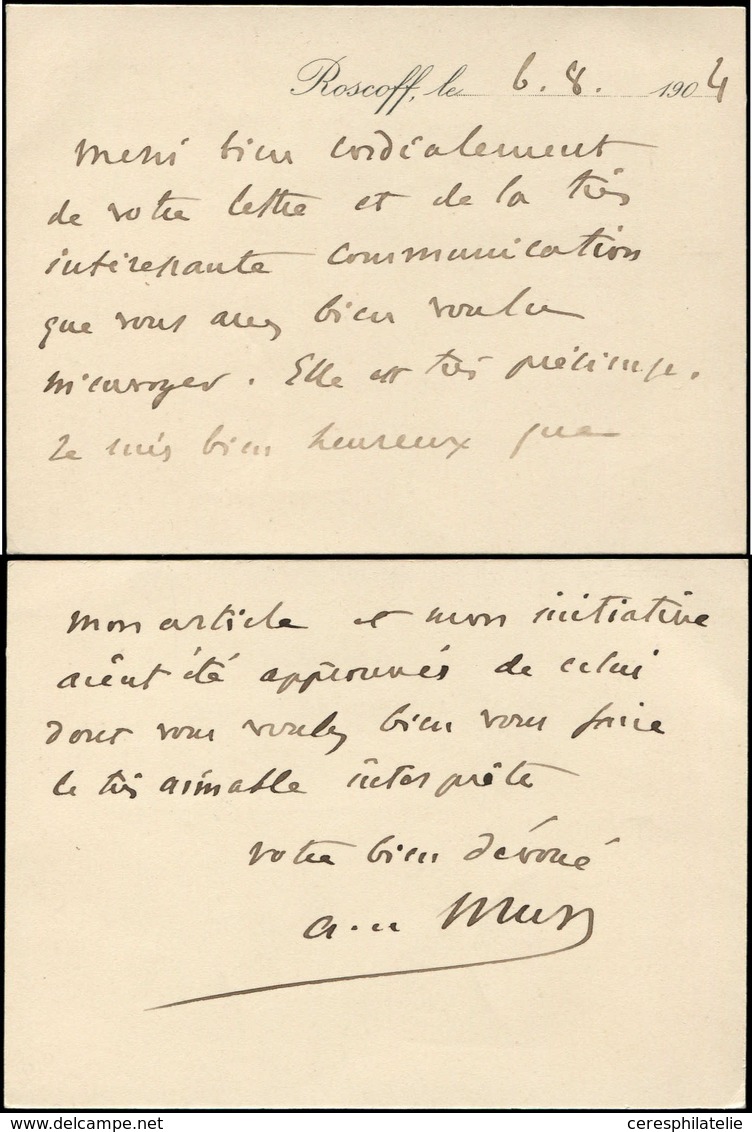 Roscoff, le 6.8. 1904
Merci bien cordialement
de votre lettre et de la très
intéressante communication
que vous avez bien voulu
m'envoyer. Elle est très précieuse.
Je suis bien heureux que
mon article et mon initiative
aient été approuvés de celui
dont vous voulez bien vous faire
le très aimable interprète
votre bien dévoué
ceresphilatelie